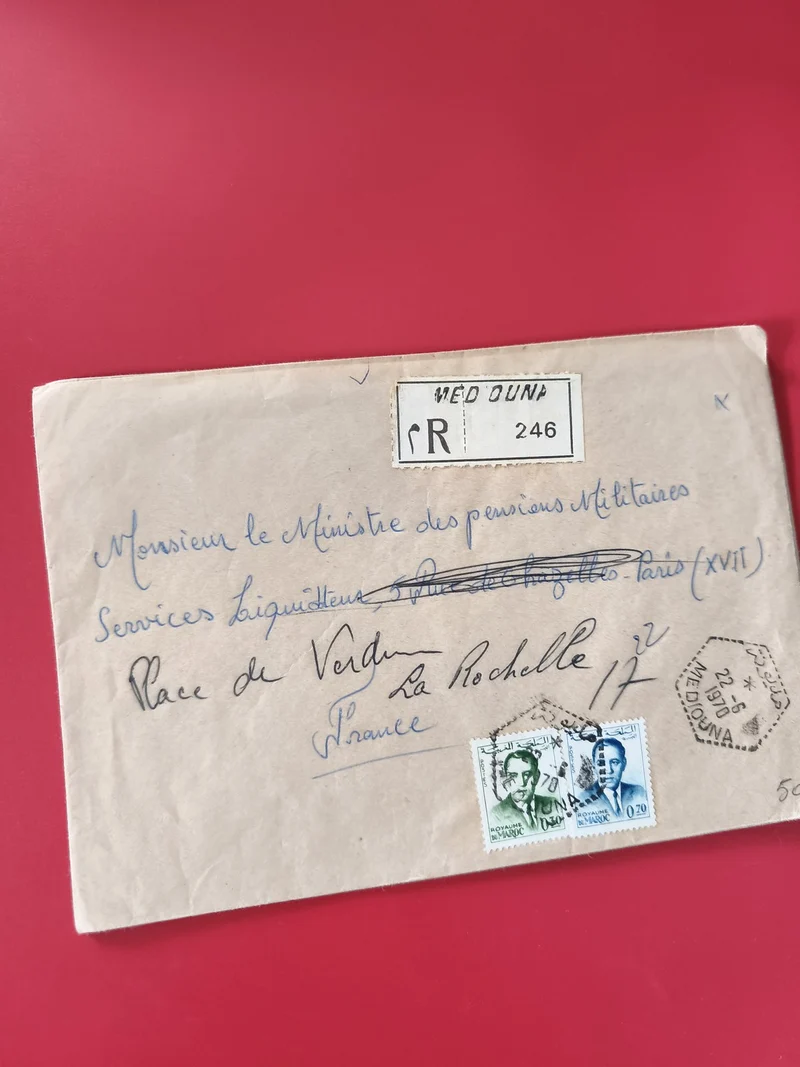 MEDIOUNA
R 246
Monsieur le Ministre des pensions Militaires
Services Liquidateurs, 5 Rue de Chazelles - Paris (XVII)
Place de Verdun
La Rochelle 17
France
22-6
1970
MEDIOUNA
ROYAUME
DU MAROC
ROYAUME
DU MAROC
0,70
50